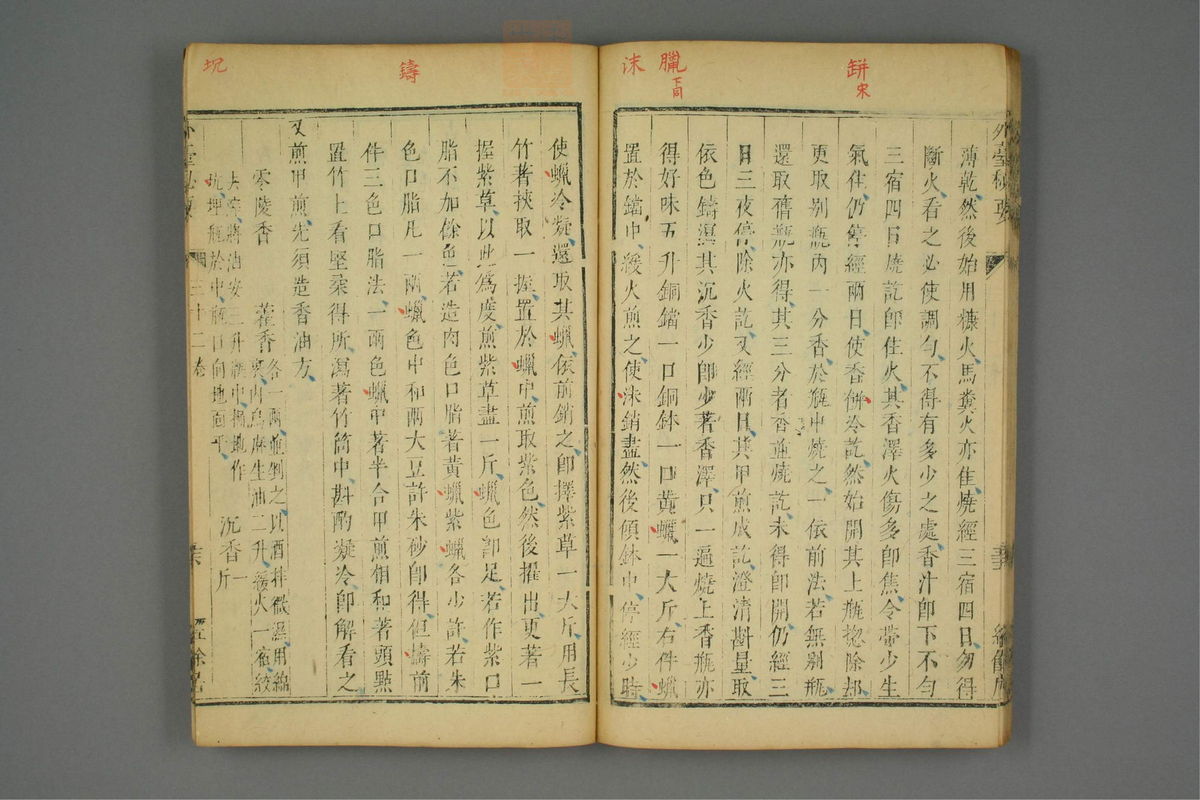 缾宋
臘下同
沬
外臺秘要
薄乾然後始用糠火馬糞火亦隹燒經三宿四日勿得
斷火看之必使調勻不得有多少之處香汁卽下不勻
三宿四日燒訖卽住火其香澤火傷多卽焦令帶少生
氣佳仍停經兩日使香缾冷訖然始開其上瓶揔除却
更取別瓶內一分香於瓶中燒之一依前法若無別瓶
還取舊瓶亦得其三分者香並燒訖未得卽開仍經三
日三夜停除火訖又經兩日其甲煎成訖澄清斟量取
依色鑄瀉其沉香少卽少著香澤只一遍燒上香瓶亦
得好味五升銅鐺一口銅鉢一口黃蠟一大斤右件蠟
置於鐺中緩火煎之使沫銷盡然後傾鉢中停經少時
鑄
坭
使蠟冷凝還取其蠟依前銷之卽擇紫草一大斤用長
竹著挾取一握置於蠟中煎取紫色然後擢出更著一
握紫草以此爲度煎紫草盡一斤蠟色卽足若作紫口
脂不加餘色若造肉色口脂著黃蠟紫蠟各少許若朱
色口脂凡一兩蠟色中和兩大豆許朱砂卽得但鑄前
件三色口脂法一兩色蠟中著半合甲煎相和著頭點
置竹上看堅柔得所瀉著竹筒中斟酌凝冷卽解看之
又煎甲煎先須造香油方
零陵香 藿香各一兩並剉之以酒拌微濕用綿裹內烏麻生油二升緩火一宿絞
去滓將油安三升瓶中掘地作坑埋瓶於中瓶口向地面平 沉香一斤
三十二卷